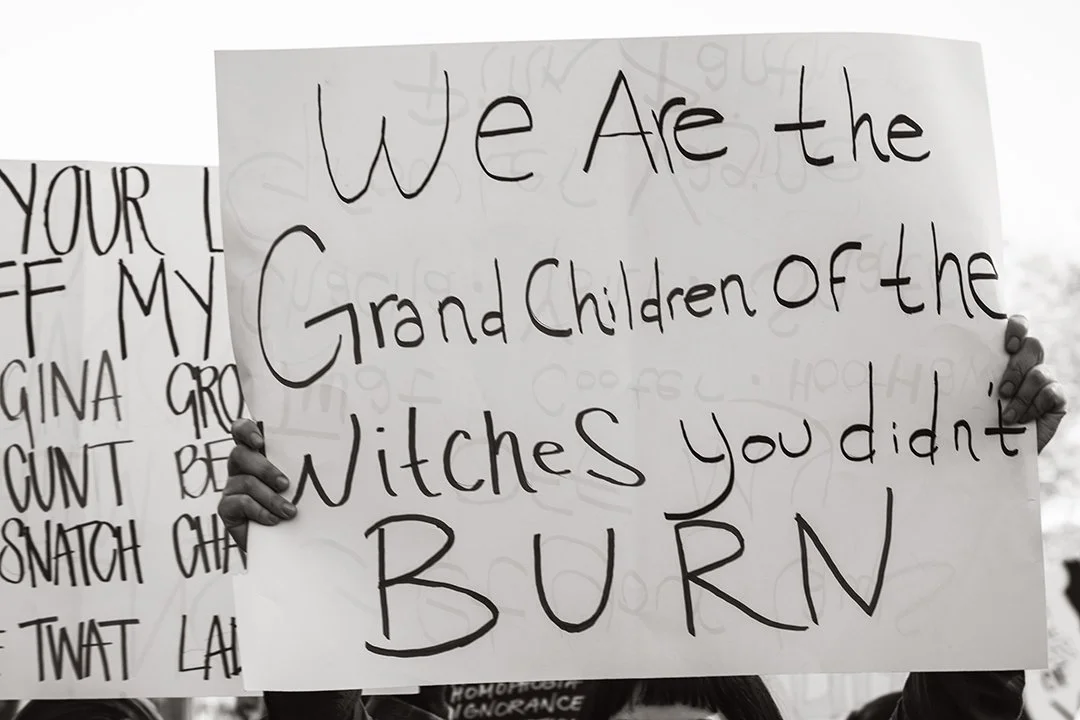 We Are the
GrandChildren OF the
Witches you didn't
BURN
YOUR L
FF MY
GINA GRO
CUNT BE
SNATCH CHA
TWAT LAL
HOMOPHOBIA
IGNORANCE